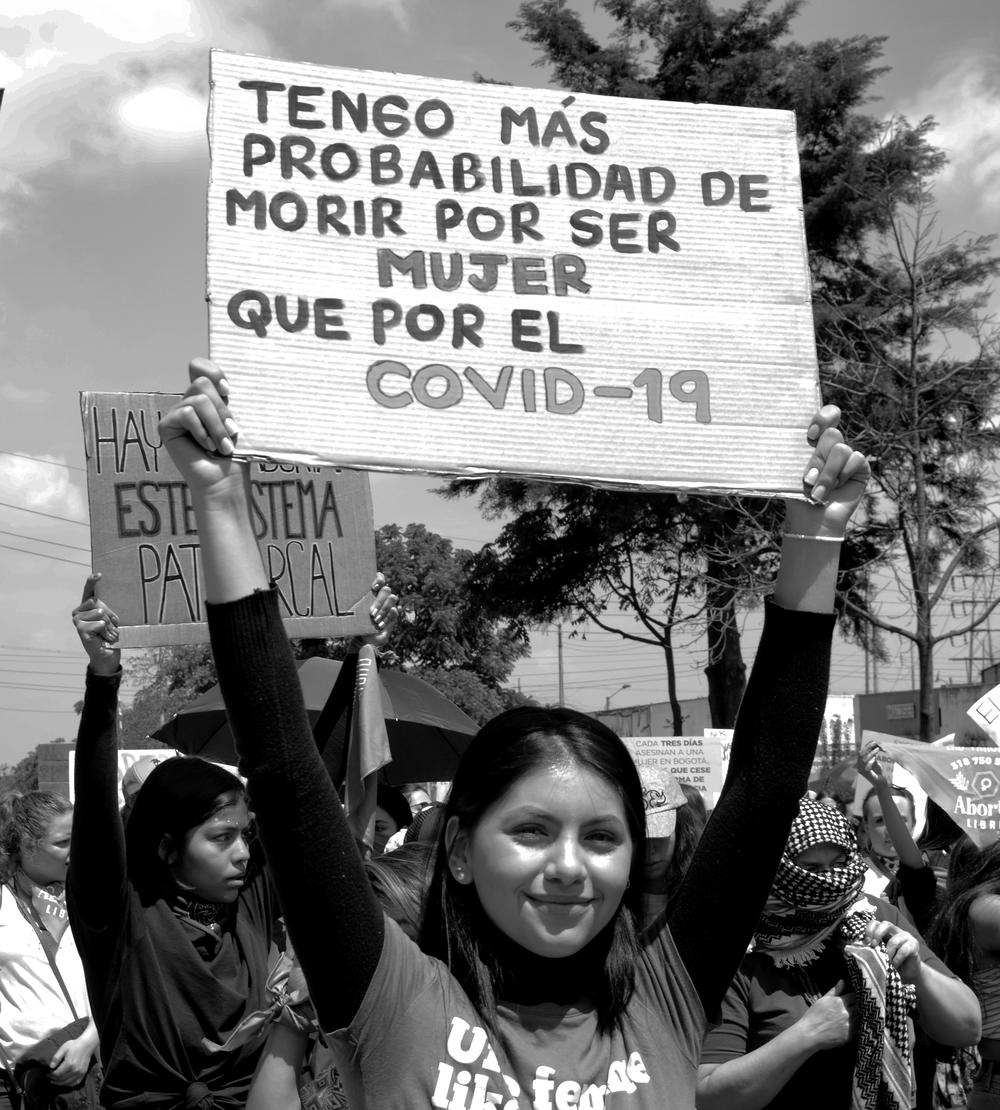 TENGO MÁS
PROBABILIDAD DE
MORIR POR SER
MUJER
QUE POR EL
COVID-19
HAY
ESTE SISTEMA
PATRIARCAL
CADA TRES DÍAS
ASESINAN A UNA
MUJER EN BOGOTÁ,
QUE CESE
318 750
LIBRE